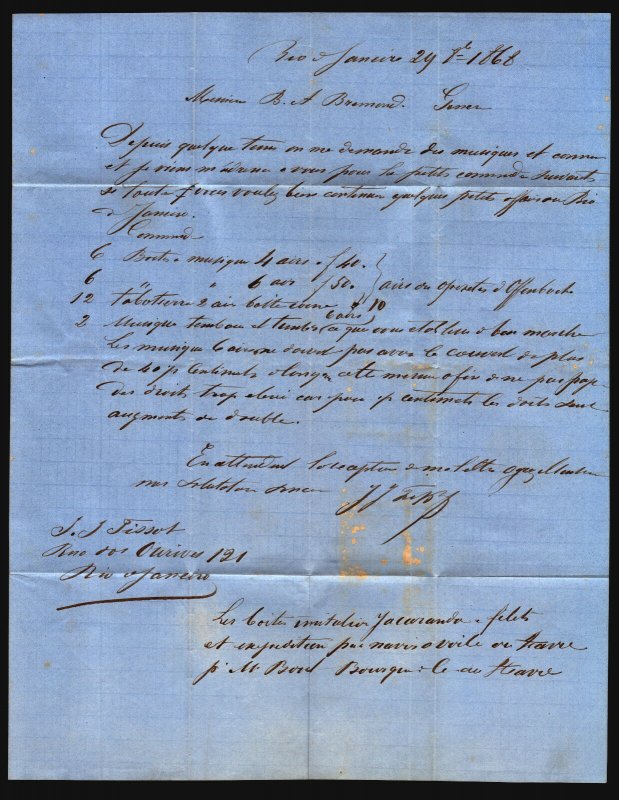 Rio d Janeiro 29 1868
Messieur B. A Bremond. Genev
Depuis quelque tems on me demande des musiques et comme
et je viens m'adresse a vous pour la petite commande suivante
si toute f vous voulez bien continuer quelques petits affaires Rio
d Janeiro.
Command
6 Boites a musique 4 airs f 40. airs ou operetes d Offenbach
6 " " 6 airs f 50.
12 tabatierre 2 air belle 10
6 airs
2 Musique tembour et que vous etablieu a bon marche
Les musique 6 airs ne doivent pas avoir le couvercle de plus
de 40 p centimets longeur cette mesure afin de ne pas paye
des droits trop eleve car pour centimets les doits sont
augmente de double.
En attendant la reception de ma lettre agreez Messieurs
mes salutations
J. J Tissot
Rua dos Ourives 121
Rio d Janeiro
Les boites imitation Jacaranda a filets
et expedition par navire a voile au Havre
pr M Bourqu & Ce au Havre